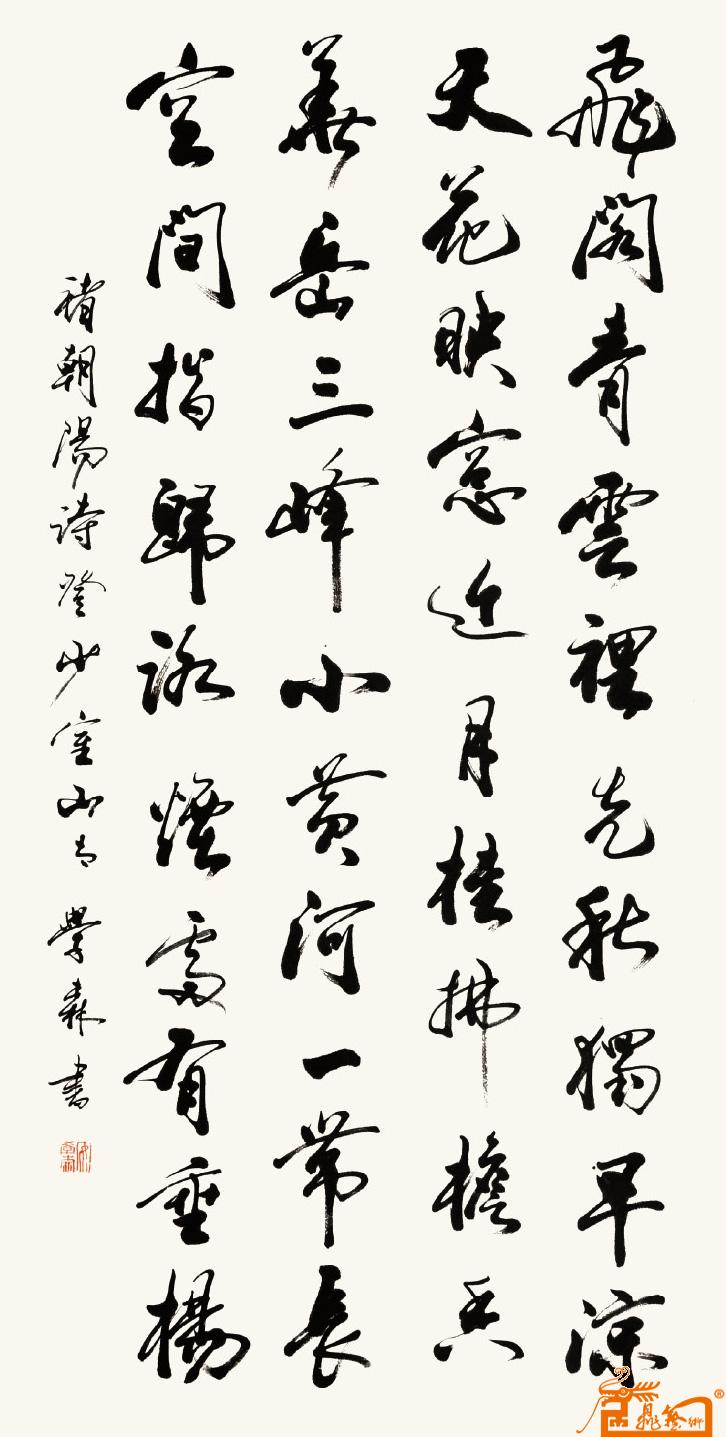 飛閣青雲裡先秋獨早涼
天花映窓近月桂拂檐香
華岳三峰小黃河一帶長
空間指歸路煙處有垂楊
褚朝陽詩登少室山寺 學森書